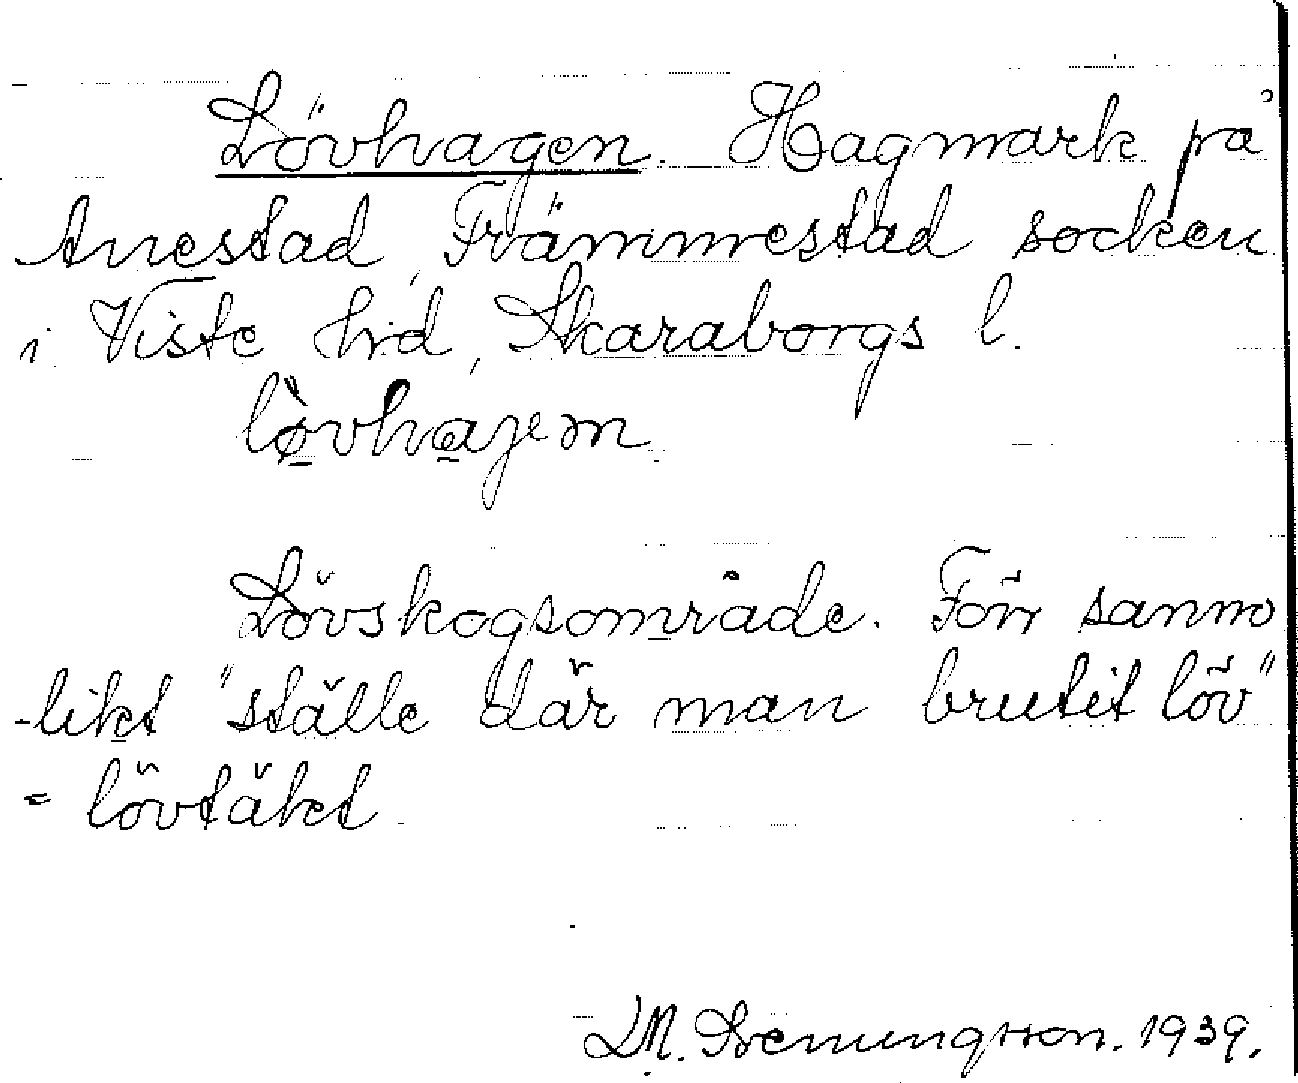 Lövhagen. Hagmark på
Anestad, Främmestad socken
i Viste hrd, Skaraborgs l.
lø̀vhajen
Lövskogsområde. Förr sanno
-likt "ställe där man brutit löv"
= lövtäkt.
M. Svenungsson. 1939.